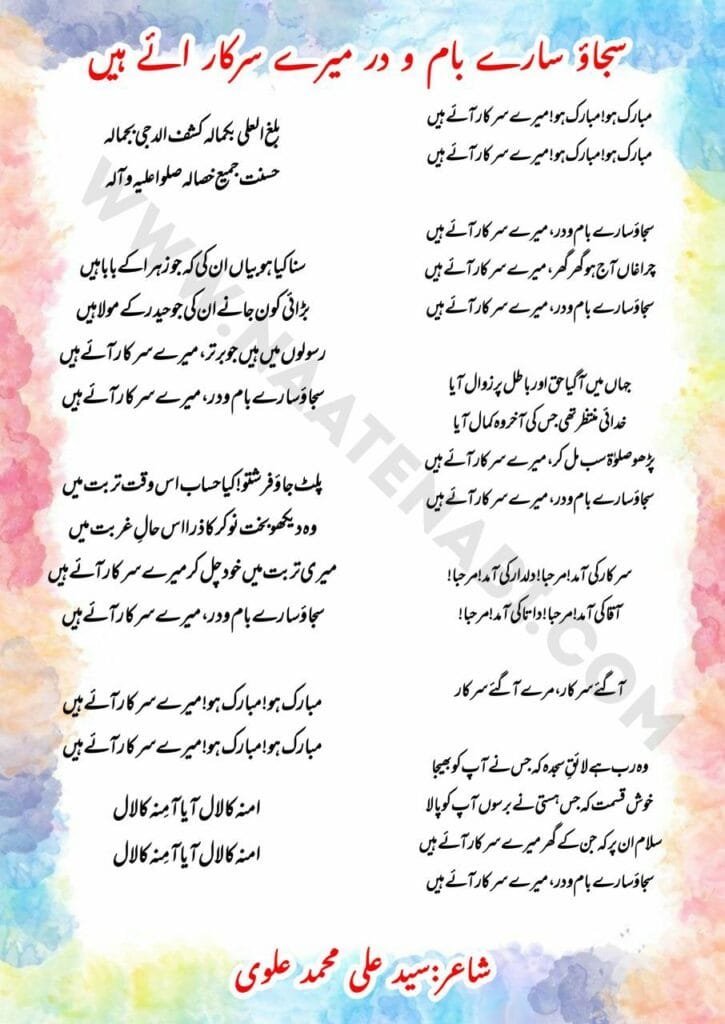 سجاؤ سارے بام و در میرے سرکار ائے ہیں
مبارک ہو! مبارک ہو! میرے سرکار آئے ہیں
مبارک ہو! مبارک ہو! میرے سرکار آئے ہیں
سجاؤ سارے بام و در، میرے سرکار آئے ہیں
چراغاں آج ہو گھر گھر، میرے سرکار آئے ہیں
سجاؤ سارے بام و در، میرے سرکار آئے ہیں
جہاں میں آگیا حق اور باطل پر زوال آیا
خدائی منتظر تھی جس کی آخر وہ کمال آیا
پڑھو صلوٰۃ سب مل کر، میرے سرکار آئے ہیں
سجاؤ سارے بام و در، میرے سرکار آئے ہیں
سرکار کی آمد! مرحبا! دلدار کی آمد! مرحبا!
آقا کی آمد! مرحبا! داتا کی آمد! مرحبا!
آگئے سرکار، مرے آگئے سرکار
وہ رب ہے لائقِ سجدہ کہ جس نے آپ کو بھیجا
خوش قسمت کہ جس ہستی نے برسوں آپ کو پالا
سلام ان پر کہ جن کے گھر میرے سرکار آئے ہیں
سجاؤ سارے بام و در، میرے سرکار آئے ہیں
بلغ العلی بکمالہ کشف الدجی بجمالہ
حسنت جمیع خصالہ صلوا علیہ و آلہ
سنا کیا ہو بیاں ان کی کہ جو زہرا کے بابا ہیں
بڑائی کون جانے ان کی جو حیدر کے مولا ہیں
رسولوں میں ہیں جو برتر، میرے سرکار آئے ہیں
سجاؤ سارے بام و در، میرے سرکار آئے ہیں
پلٹ جاؤ فرشتو! کیا حساب اس وقت تربت میں
وہ دیکھو بخت نوکر کا ذرا اس حالِ غربت میں
میری تربت میں خود چل کر میرے سرکار آئے ہیں
سجاؤ سارے بام و در، میرے سرکار آئے ہیں
مبارک ہو! مبارک ہو! میرے سرکار آئے ہیں
مبارک ہو! مبارک ہو! میرے سرکار آئے ہیں
امنہ کا لال آیا آمِنہ کا لال
امنہ کا لال آیا آمِنہ کا لال
شاعر:سید علی محمد علوی
WWW.NAATENABI.COM